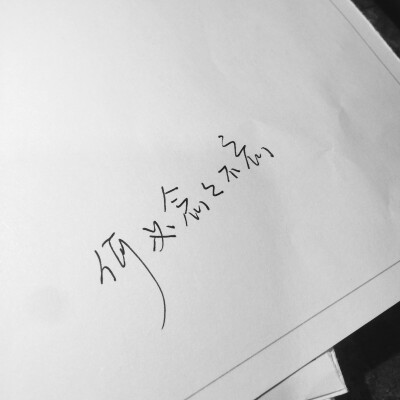 何必念念不忘